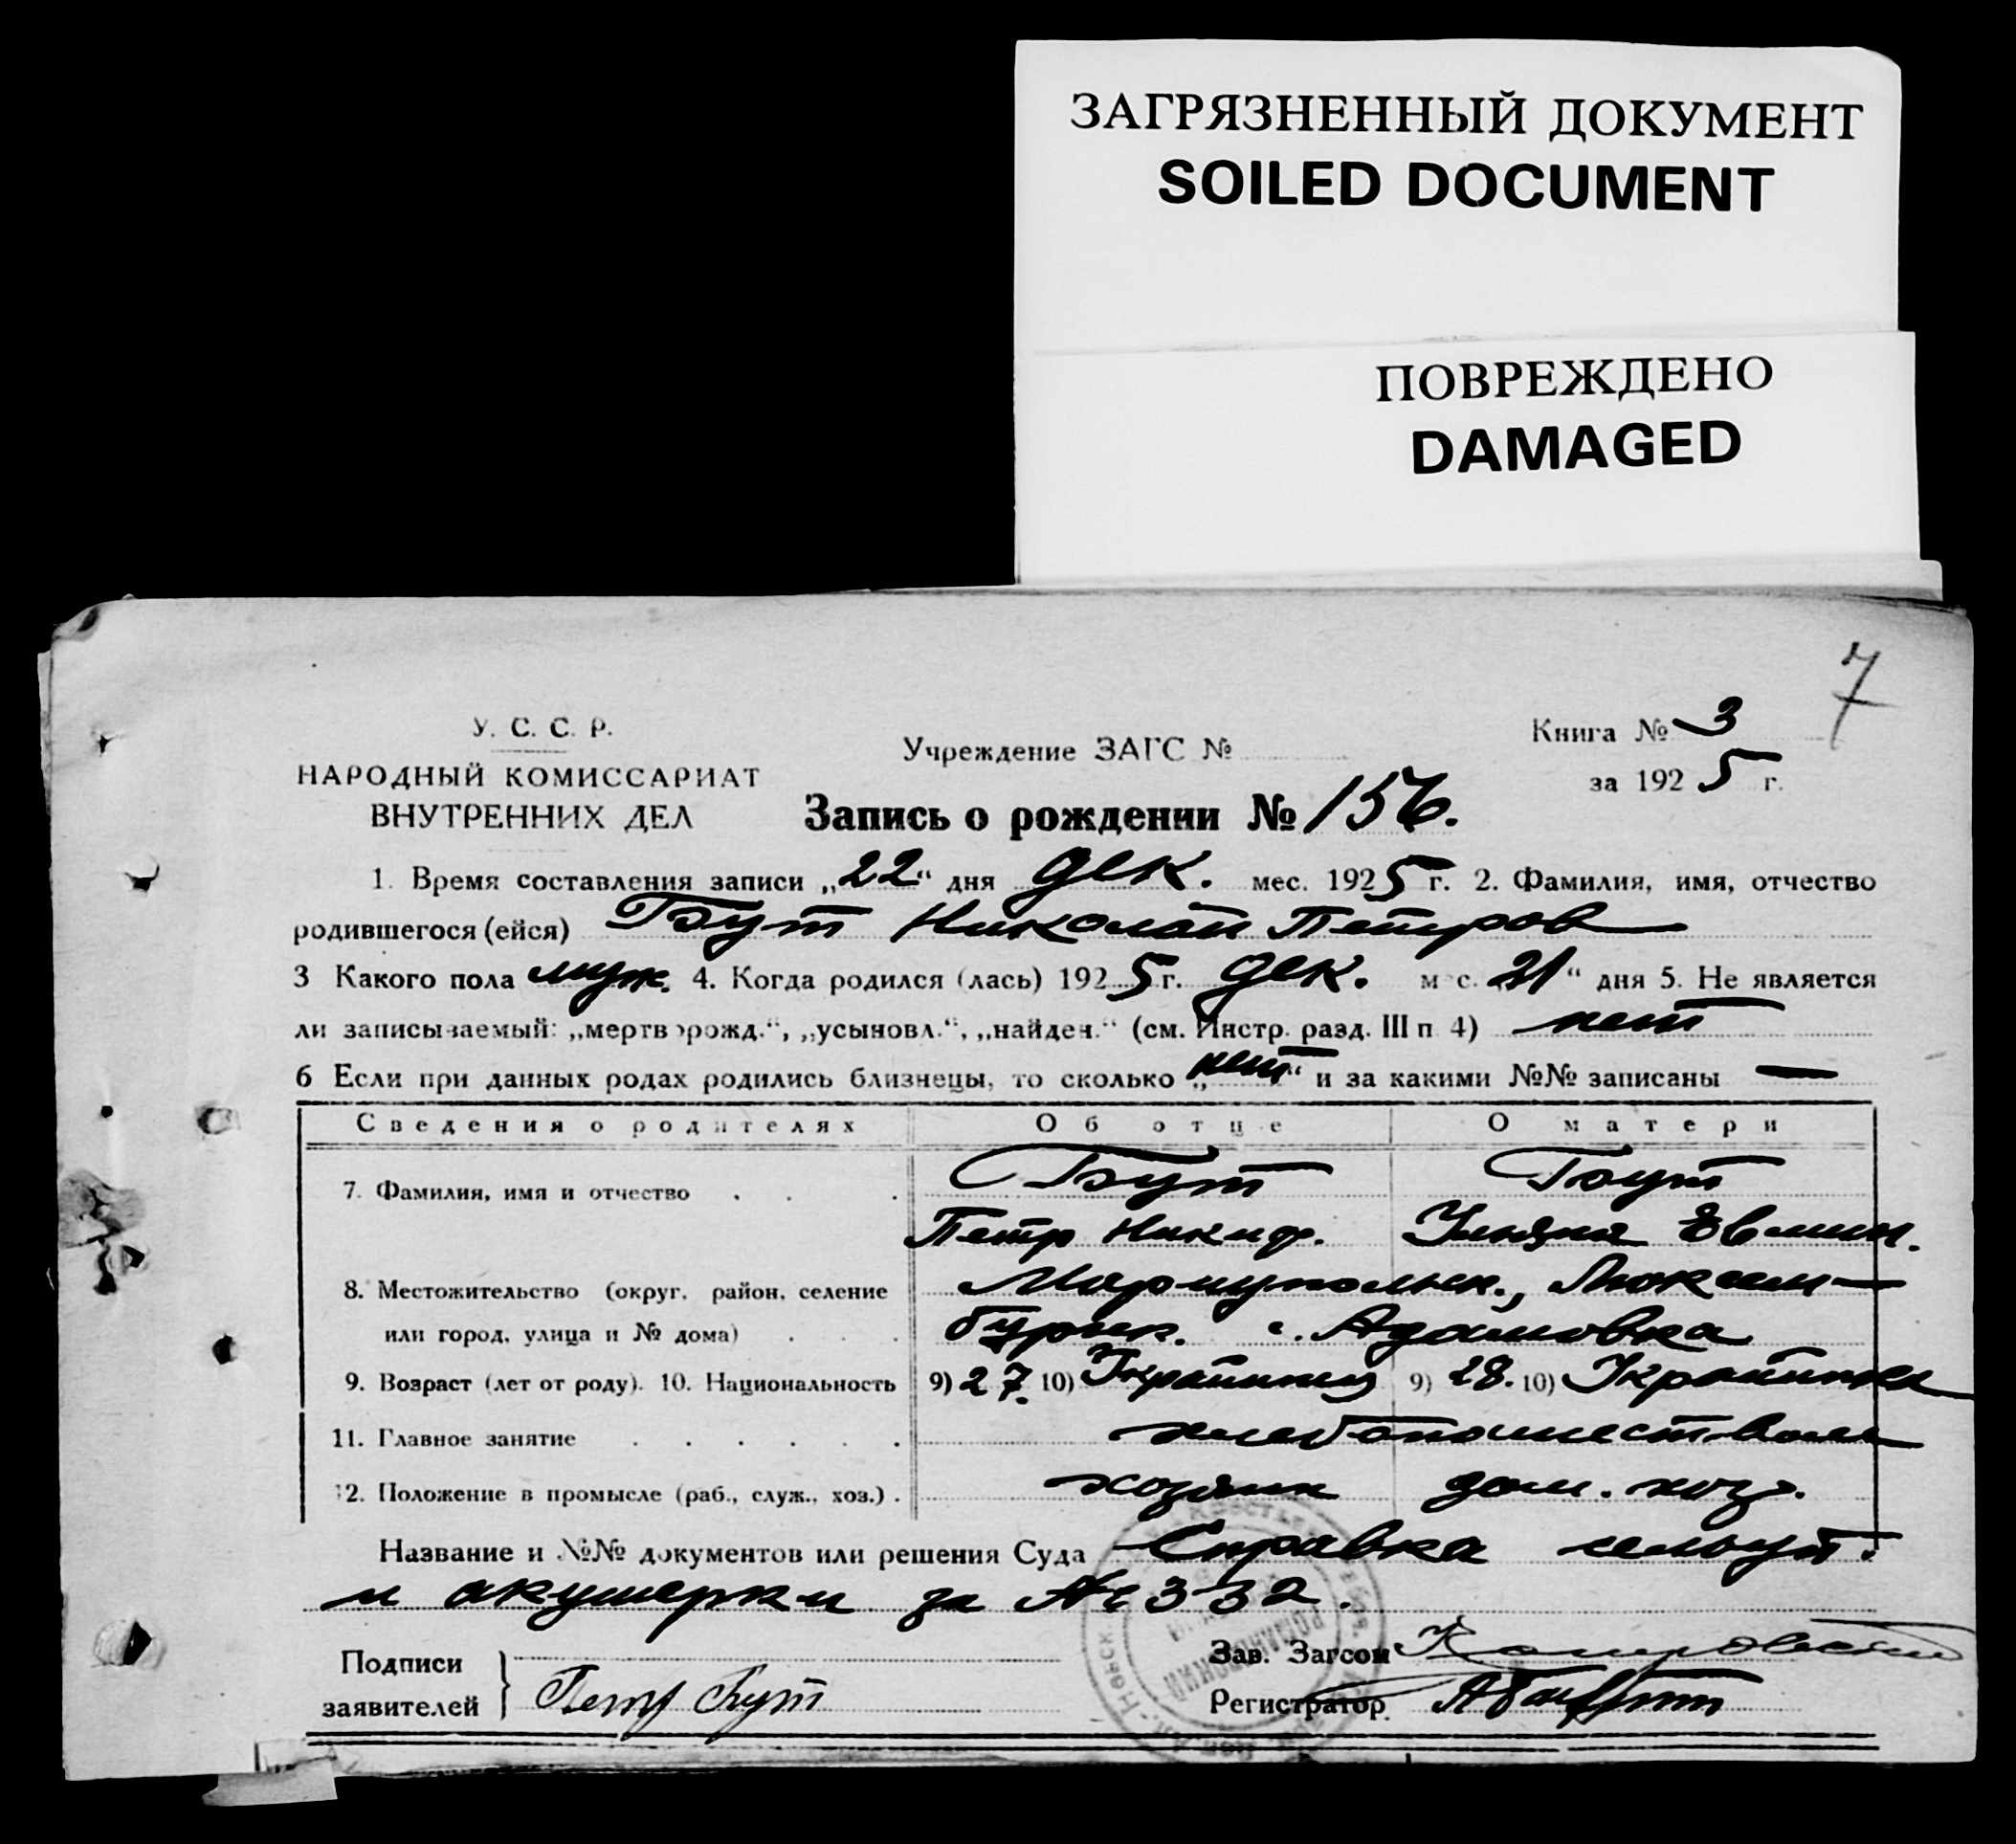 ЗАГРЯЗНЕННЫЙ ДОКУМЕНТ
SOILED DOCUMENT
ПОВРЕЖДЕНО
DAMAGED
7
У. С. С. Р.
НАРОДНЫЙ КОМИССАРИАТ
ВНУТРЕННИХ ДЕЛ
Учреждение ЗАГС №
Книга № 3
за 1925 г.
Запись о рождении № 156.
1. Время составления записи „22“ дня дек. мес. 1925 г. 2. Фамилия, имя, отчество
родившегося (ейся) Бут Николай Петров
3 Какого пола муж. 4. Когда родился (лась) 1925 г. дек. мес. „21“ дня 5. Не является
ли записываемый: „мертворожд.“, „усыновл.“, „найден.“ (см. Инстр. разд. III п 4) нет
6 Если при данных родах родились близнецы, то сколько „нет“ и за какими №№ записаны —
Сведения о родителях Об отце О матери
7. Фамилия, имя и отчество . . . Бут Бут
Петр Никиф. Ульяна Евмин.
8. Местожительство (округ, район, селение Мариупольск., Люксем-
или город, улица и № дома) . . . бургск. с. Адамовка
9. Возраст (лет от роду). 10. Национальность 9) 27. 10) Украинец 9) 28. 10) Украинка
11. Главное занятие . . . . . . хлебопашеством
12. Положение в промысле (раб., служ., хоз.) . хозяин дом. хоз.
Название и №№ документов или решения Суда Справка
и акушерки за № 332.
Подписи
заявителей } Петр Бут
Зав. Загсом
Регистратор